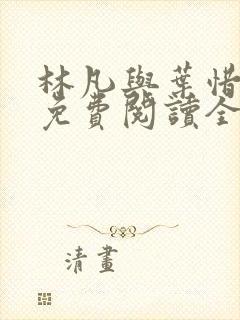 林凡與葉惜
免費閱讀全
清畫